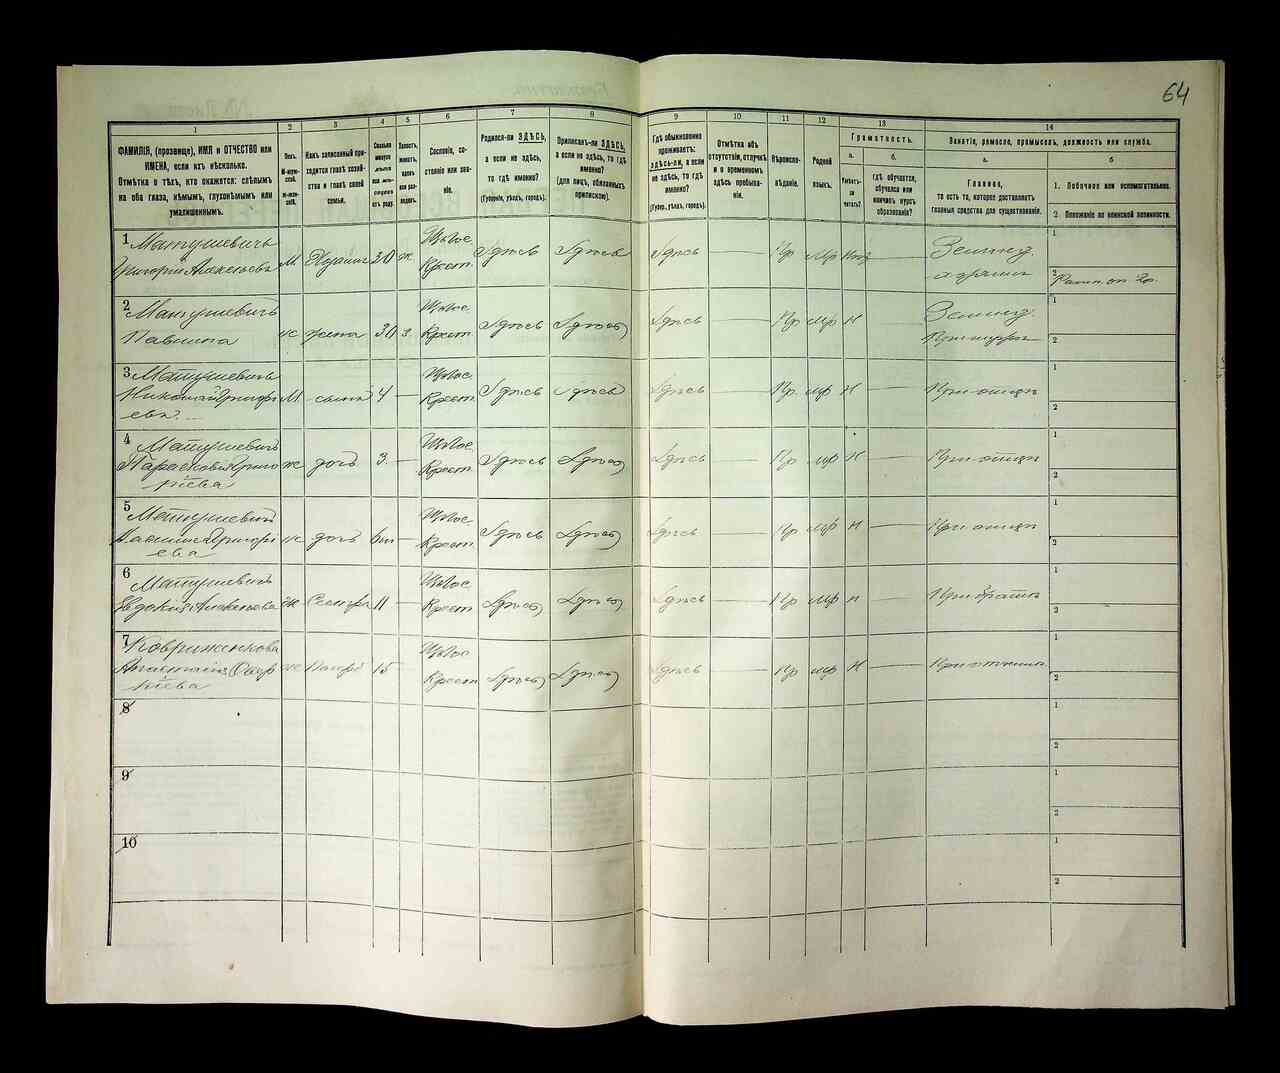 64
1
2
3
4
5
6
7
8
9
10
11
12
13
14
ФАМИЛІЯ, (прозвище), ИМЯ и ОТЧЕСТВО или
ИМЕНА, если ихъ нѣсколько.
Отмѣтка о тѣхъ, кто окажется: слѣпымъ
на оба глаза, нѣмымъ, глухонѣмымъ или
умалишеннымъ.
Полъ.
М-муж-
ской.
Ж-жен-
скій.
Какъ записанный при-
ходится главѣ хозяй-
ства и главѣ своей
семьи.
Сколько
минуло
лѣтъ
Холостъ,
женатъ,
вдовъ
или раз-
веденъ.
Сословіе, со-
стояніе или зва-
ніе.
Родился-ли ЗДѢСЬ,
а если не здѣсь,
то гдѣ именно?
(Губернія, уѣздъ, городъ).
Приписанъ-ли ЗДѢСЬ,
а если не здѣсь, то гдѣ
именно?
(для лицъ, обязанныхъ
припискою).
Гдѣ обыкновенно
проживаетъ:
здѣсь-ли, а если
не здѣсь, то гдѣ
именно?
(Губер., уѣздъ, городъ).
Отмѣтка объ
отсутствіи, отлучкѣ
и о временномъ
здѣсь пребыва-
ніи.
Вѣроиспо-
вѣданіе.
Родной
языкъ.
Грамотность.
а.
б.
Умѣетъ-
ли
читать?
гдѣ обучается,
обучался или
кончилъ курсъ
образованія?
Занятіе, ремесло, промыселъ, должность или служба.
а.
б
Главное,
то есть то, которое доставляетъ
главныя средства для существованія.
1. Побочное или вспомогательное.
2. Положеніе по воинской повинности.
1 Матушевичъ
Григорій Алексѣевъ М Хозяинъ 30 ж Крест. Здѣсь Здѣсь Здѣсь — Пр Мр Землед.
1
2
2 Матушевичъ
Павлина ж жена 30 з. Крест. Здѣсь Здѣсь Здѣсь — Пр мр н Землед.
1
2
3 Матушевичъ
Николай Григорі
евъ. М. сынъ 4 — Крест. Здѣсь Здѣсь Здѣсь — Пр. мр Н — При отцѣ
1
2
4 Матушевичъ
Парасковья Григо
ріева ж дочь 3. — Крест. Здѣсь Здѣсь Здѣсь — Пр мр Н — При отцѣ
1
2
5 Матушевичъ
Григорі
ева ж дочь — Крест. Здѣсь Здѣсь Здѣсь — Пр мр н — При отцѣ
1
2
6 Матушевичъ
Евдокія Алексѣева ж Сестра 11 — Крест. Здѣсь Здѣсь Здѣсь — Пр мр н — При братѣ
1
2
7 Ковриженкова
Анастасія
ж 15 — Крест Здѣсь Здѣсь Здѣсь — Пр мр Н —
1
2
8
1
2
9
1
2
10
1
2